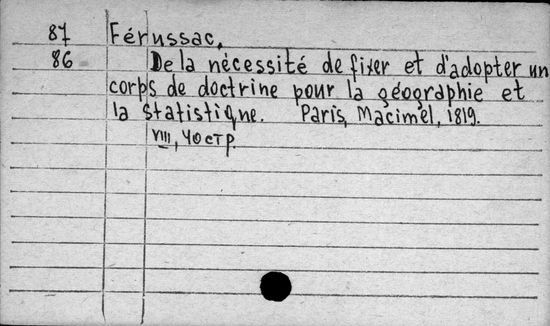 87 Férussac,
86 De la nécessité de fixer et d'adopter un
corps de doctrine pour la géographie et
la statistique. Paris, Macimel, 1819.
VIII, 40 стр.